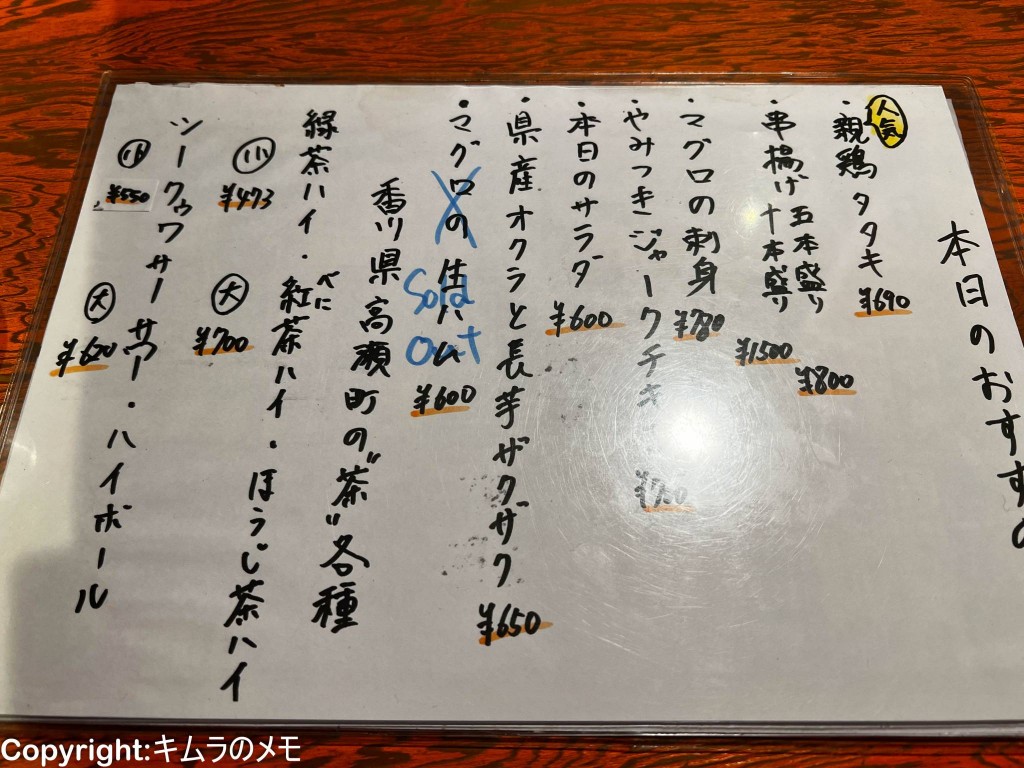 本日のおすすめ
人気
・親鶏タタキ ¥690
・串揚げ 五本盛り ¥800
十本盛り ¥1500
・マグロの刺身 ¥780
・やみつきジャークチキ
・本日のサラダ ¥600
・県産オクラと長芋ザクザク ¥650
・マグロの生ハム ¥600
Sold
Out
香川県高瀬町の"茶"各種
緑茶ハイ・紅茶ハイ・ほうじ茶ハイ
べに
小 ¥473 大 ¥700
シークゥワサーサワー・ハイボール
小 ¥550 大 ¥620
Copyright:キムラのメモ